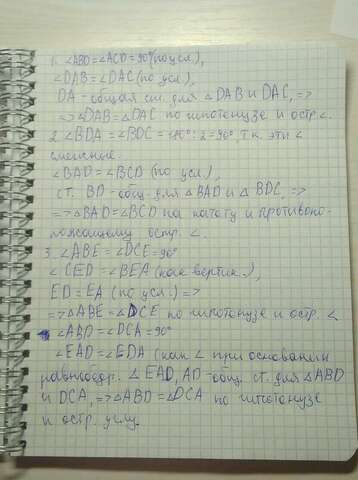 1. ∠ABD=∠ACD=90°(по усл.),
∠DAB=∠DAC(по усл.),
DA-общая ст. для △DAB и DAC, =>
=>△DAB=△DAC по гипотенузе и остр. ∠.
2. ∠BDA=∠BDC=180°:2=90°, т.к. эти ∠
смежные.
∠BAD=∠BCD (по усл.),
ст. BD-общ. для △BAD и △ BDC, =>
=>△BAD=∠BCD по катету и противопо-
ложащему остр. ∠.
3. ∠ABE=∠DCE=90°
∠CED=∠BEA (как вертик.),
ED=EA (по усл.) =>
=>△ABE=△DCE по гипотенузе и остр. ∠
∠ABD=∠DCA=90°
∠EAD=∠EDA (как ∠ при основании
равнобедр. ∠EAD, AD-общ. ст. для △ABD
и DCA, =>△ABD=△DCA по гипотенузе
и остр. углу.